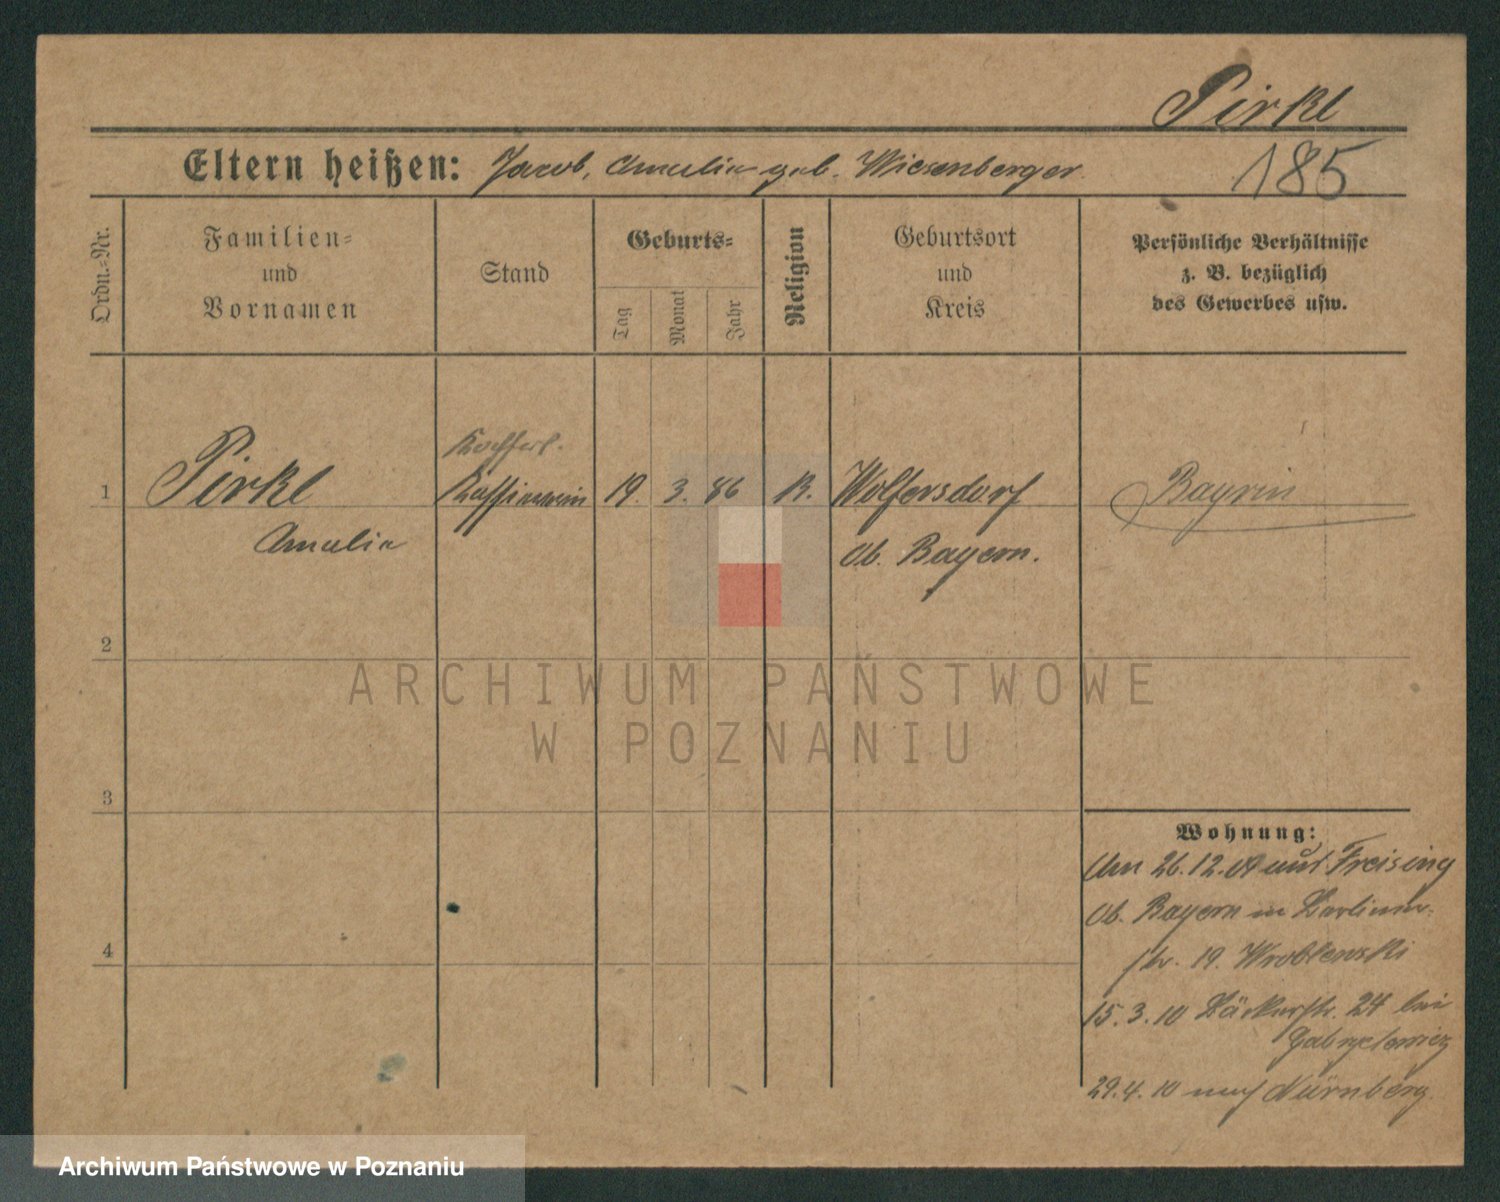 Pirkl
185
Eltern heißen: Jacob, Amalia geb. Wiesenberger.
Ordn.-Nr.
Familien-
und
Vornamen
Stand
Geburts-
Tag
Monat
Jahr
Religion
Geburtsort
und
Kreis
Persönliche Verhältnisse
z. B. bezüglich
des Gewerbes usw.
1
Pirkl
Amalie
19. 3. 86
K.
Wolfersdorf
Ob. Bayern.
Bayrin
2
ARCHIWUM PAŃSTWOWE
W POZNANIU
3
Wohnung:
Am 26.12.09 aus Freising
Ob. Bayern in
str. 19. Wroblewski
4
15.3.10 Bäckerstr. 24 bei
29.4.10 nach Nürnberg.
Archiwum Państwowe w Poznaniu